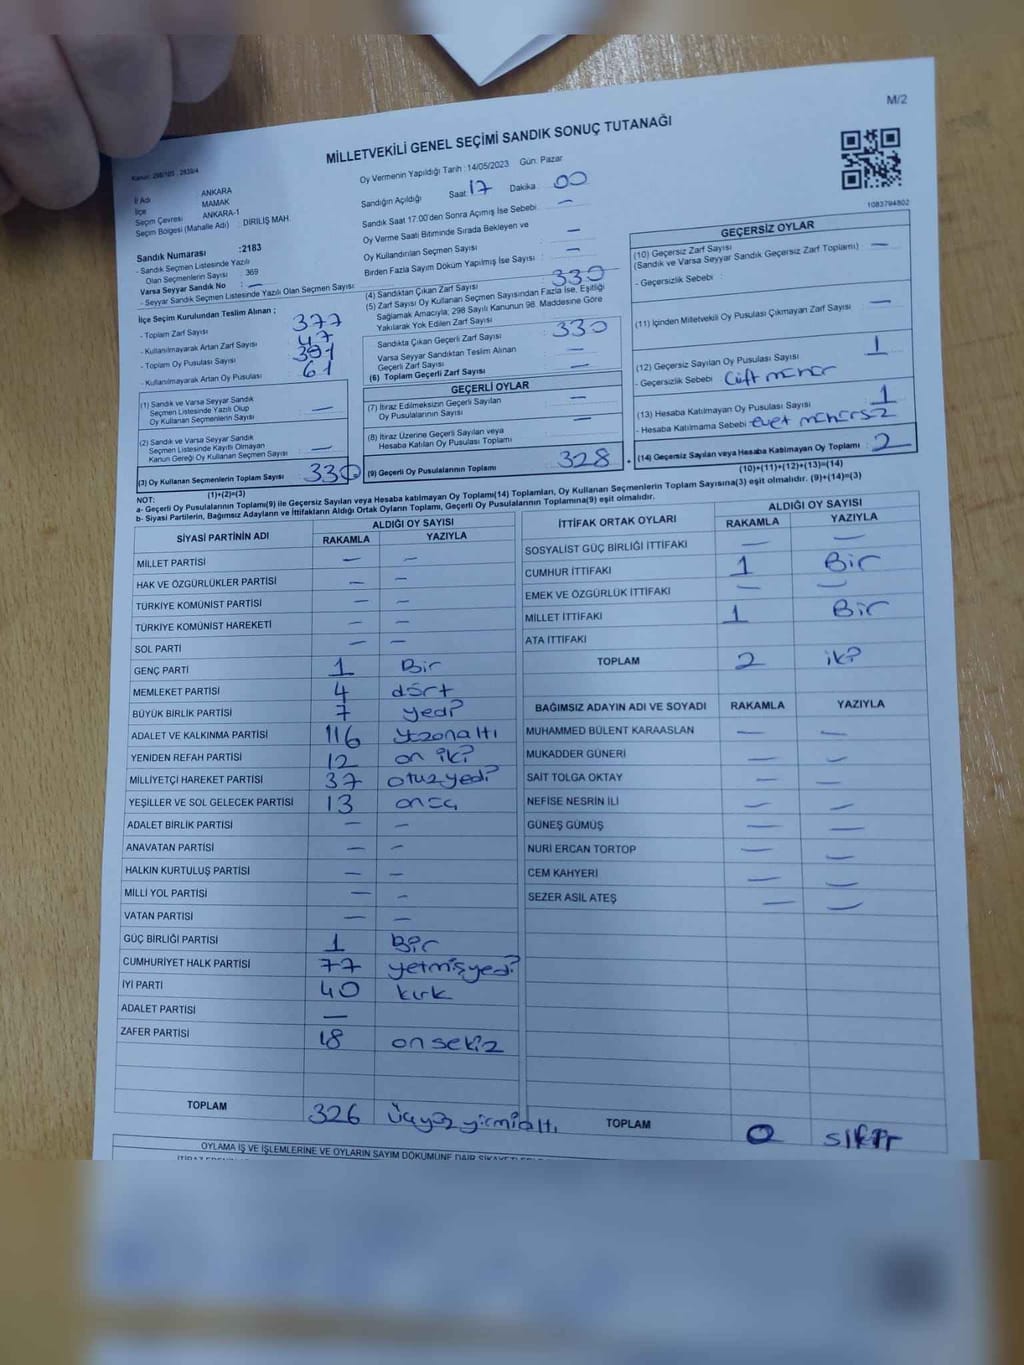 M/2
MİLLETVEKİLİ GENEL SEÇİMİ SANDIK SONUÇ TUTANAĞI
Oy Vermenin Yapıldığı Tarih : 14/05/2023 Gün: Pazar
İl Adı ANKARA
İlçe MAMAK
Seçim Çevresi ANKARA-1
Seçim Bölgesi (Mahalle Adı) : DİRİLİŞ MAH.
Sandık Numarası :2183
- Sandık Seçmen Listesinde Yazılı
Olan Seçmenlerin Sayısı : 369
Varsa Seyyar Sandık No : —
- Seyyar Sandık Seçmen Listesinde Yazılı Olan Seçmen Sayısı:
Sandığın Açıldığı Saat 17 Dakika : 00
Sandık Saat 17:00'den Sonra Açılmış İse Sebebi : —
Oy Verme Saati Bitiminde Sırada Bekleyen ve
Oy Kullandırılan Seçmen Sayısı : —
Birden Fazla Sayım Döküm Yapılmış İse Sayısı : —
1083794802
İlçe Seçim Kurulundan Teslim Alınan ;
- Toplam Zarf Sayısı : 377
- Kullanılmayarak Artan Zarf Sayısı : 47
- Toplam Oy Pusulası Sayısı : 391
- Kullanılmayarak Artan Oy Pusulası : 61
(1) Sandık ve Varsa Seyyar Sandık
Seçmen Listesinde Yazılı Olup
Oy Kullanan Seçmenlerin Sayısı : —
(2) Sandık ve Varsa Seyyar Sandık
Seçmen Listesinde Kayıtlı Olmayan
Kanun Gereği Oy Kullanan Seçmen Sayısı : —
(3) Oy Kullanan Seçmenlerin Toplam Sayısı : 330
(1)+(2)=(3)
(4) Sandıktan Çıkan Zarf Sayısı : 330
(5) Zarf Sayısı Oy Kullanan Seçmen Sayısından Fazla İse, Eşitliği
Sağlamak Amacıyla; 298 Sayılı Kanunun 98. Maddesine Göre
Yakılarak Yok Edilen Zarf Sayısı :
Sandıkta Çıkan Geçerli Zarf Sayısı : 330
Varsa Seyyar Sandıktan Teslim Alınan
Geçerli Zarf Sayısı : —
(6) Toplam Geçerli Zarf Sayısı : —
GEÇERLİ OYLAR
(7) İtiraz Edilmeksizin Geçerli Sayılan
Oy Pusulalarının Sayısı : —
(8) İtiraz Üzerine Geçerli Sayılan veya
Hesaba Katılan Oy Pusulası Toplamı : —
(9) Geçerli Oy Pusulalarının Toplamı : 328
GEÇERSİZ OYLAR
(10) Geçersiz Zarf Sayısı
(Sandık ve Varsa Seyyar Sandık Geçersiz Zarf Toplamı) : —
- Geçersizlik Sebebi :
(11) İçinden Milletvekili Oy Pusulası Çıkmayan Zarf Sayısı : —
(12) Geçersiz Sayılan Oy Pusulası Sayısı : 1
- Geçersizlik Sebebi : Çift mühür
(13) Hesaba Katılmayan Oy Pusulası Sayısı : 1
- Hesaba Katılmama Sebebi : evet mühürsüz
(14) Geçersiz Sayılan veya Hesaba Katılmayan Oy Toplamı : 2
(10)+(11)+(12)+(13)=(14)
NOT:
a- Geçerli Oy Pusulalarının Toplamı(9) ile Geçersiz Sayılan veya Hesaba katılmayan Oy Toplamı(14) Toplamları, Oy Kullanan Seçmenlerin Toplam Sayısına(3) eşit olmalıdır. (9)+(14)=(3)
b- Siyasi Partilerin, Bağımsız Adayların ve İttifakların Aldığı Ortak Oyların Toplamı, Geçerli Oy Pusulalarının Toplamına(9) eşit olmalıdır.
SİYASİ PARTİNİN ADI ALDIĞI OY SAYISI
RAKAMLA YAZIYLA
MİLLET PARTİSİ — —
HAK VE ÖZGÜRLÜKLER PARTİSİ — —
TÜRKİYE KOMÜNİST PARTİSİ — —
TÜRKİYE KOMÜNİST HAREKETİ — —
SOL PARTİ — —
GENÇ PARTİ 1 Bir
MEMLEKET PARTİSİ 4 dört
BÜYÜK BİRLİK PARTİSİ 7 yedi
ADALET VE KALKINMA PARTİSİ 116 yüzonaltı
YENİDEN REFAH PARTİSİ 12 on iki
MİLLİYETÇİ HAREKET PARTİSİ 37 otuzyedi
YEŞİLLER VE SOL GELECEK PARTİSİ 13 onüç
ADALET BİRLİK PARTİSİ — —
ANAVATAN PARTİSİ — —
HALKIN KURTULUŞ PARTİSİ — —
MİLLİ YOL PARTİSİ — —
VATAN PARTİSİ — —
GÜÇ BİRLİĞİ PARTİSİ 1 Bir
CUMHURİYET HALK PARTİSİ 77 yetmişyedi
İYİ PARTİ 40 kırk
ADALET PARTİSİ —
ZAFER PARTİSİ 18 onsekiz
TOPLAM 326 Üçyüzyirmialtı
İTTİFAK ORTAK OYLARI ALDIĞI OY SAYISI
RAKAMLA YAZIYLA
SOSYALİST GÜÇ BİRLİĞİ İTTİFAKI — —
CUMHUR İTTİFAKI 1 Bir
EMEK VE ÖZGÜRLÜK İTTİFAKI — —
MİLLET İTTİFAKI 1 Bir
ATA İTTİFAKI
TOPLAM 2 iki
BAĞIMSIZ ADAYIN ADI VE SOYADI RAKAMLA YAZIYLA
MUHAMMED BÜLENT KARAASLAN — —
MUKADDER GÜNERİ — —
SAİT TOLGA OKTAY — —
NEFİSE NESRİN İLİ — —
GÜNEŞ GÜMÜŞ — —
NURİ ERCAN TORTOP — —
CEM KAHYERİ — —
SEZER ASIL ATEŞ — —
TOPLAM 0 sıfır
OYLAMA İŞ VE İŞLEMLERİNE VE OYLARIN SAYIM DÖKÜMÜNE DAİR